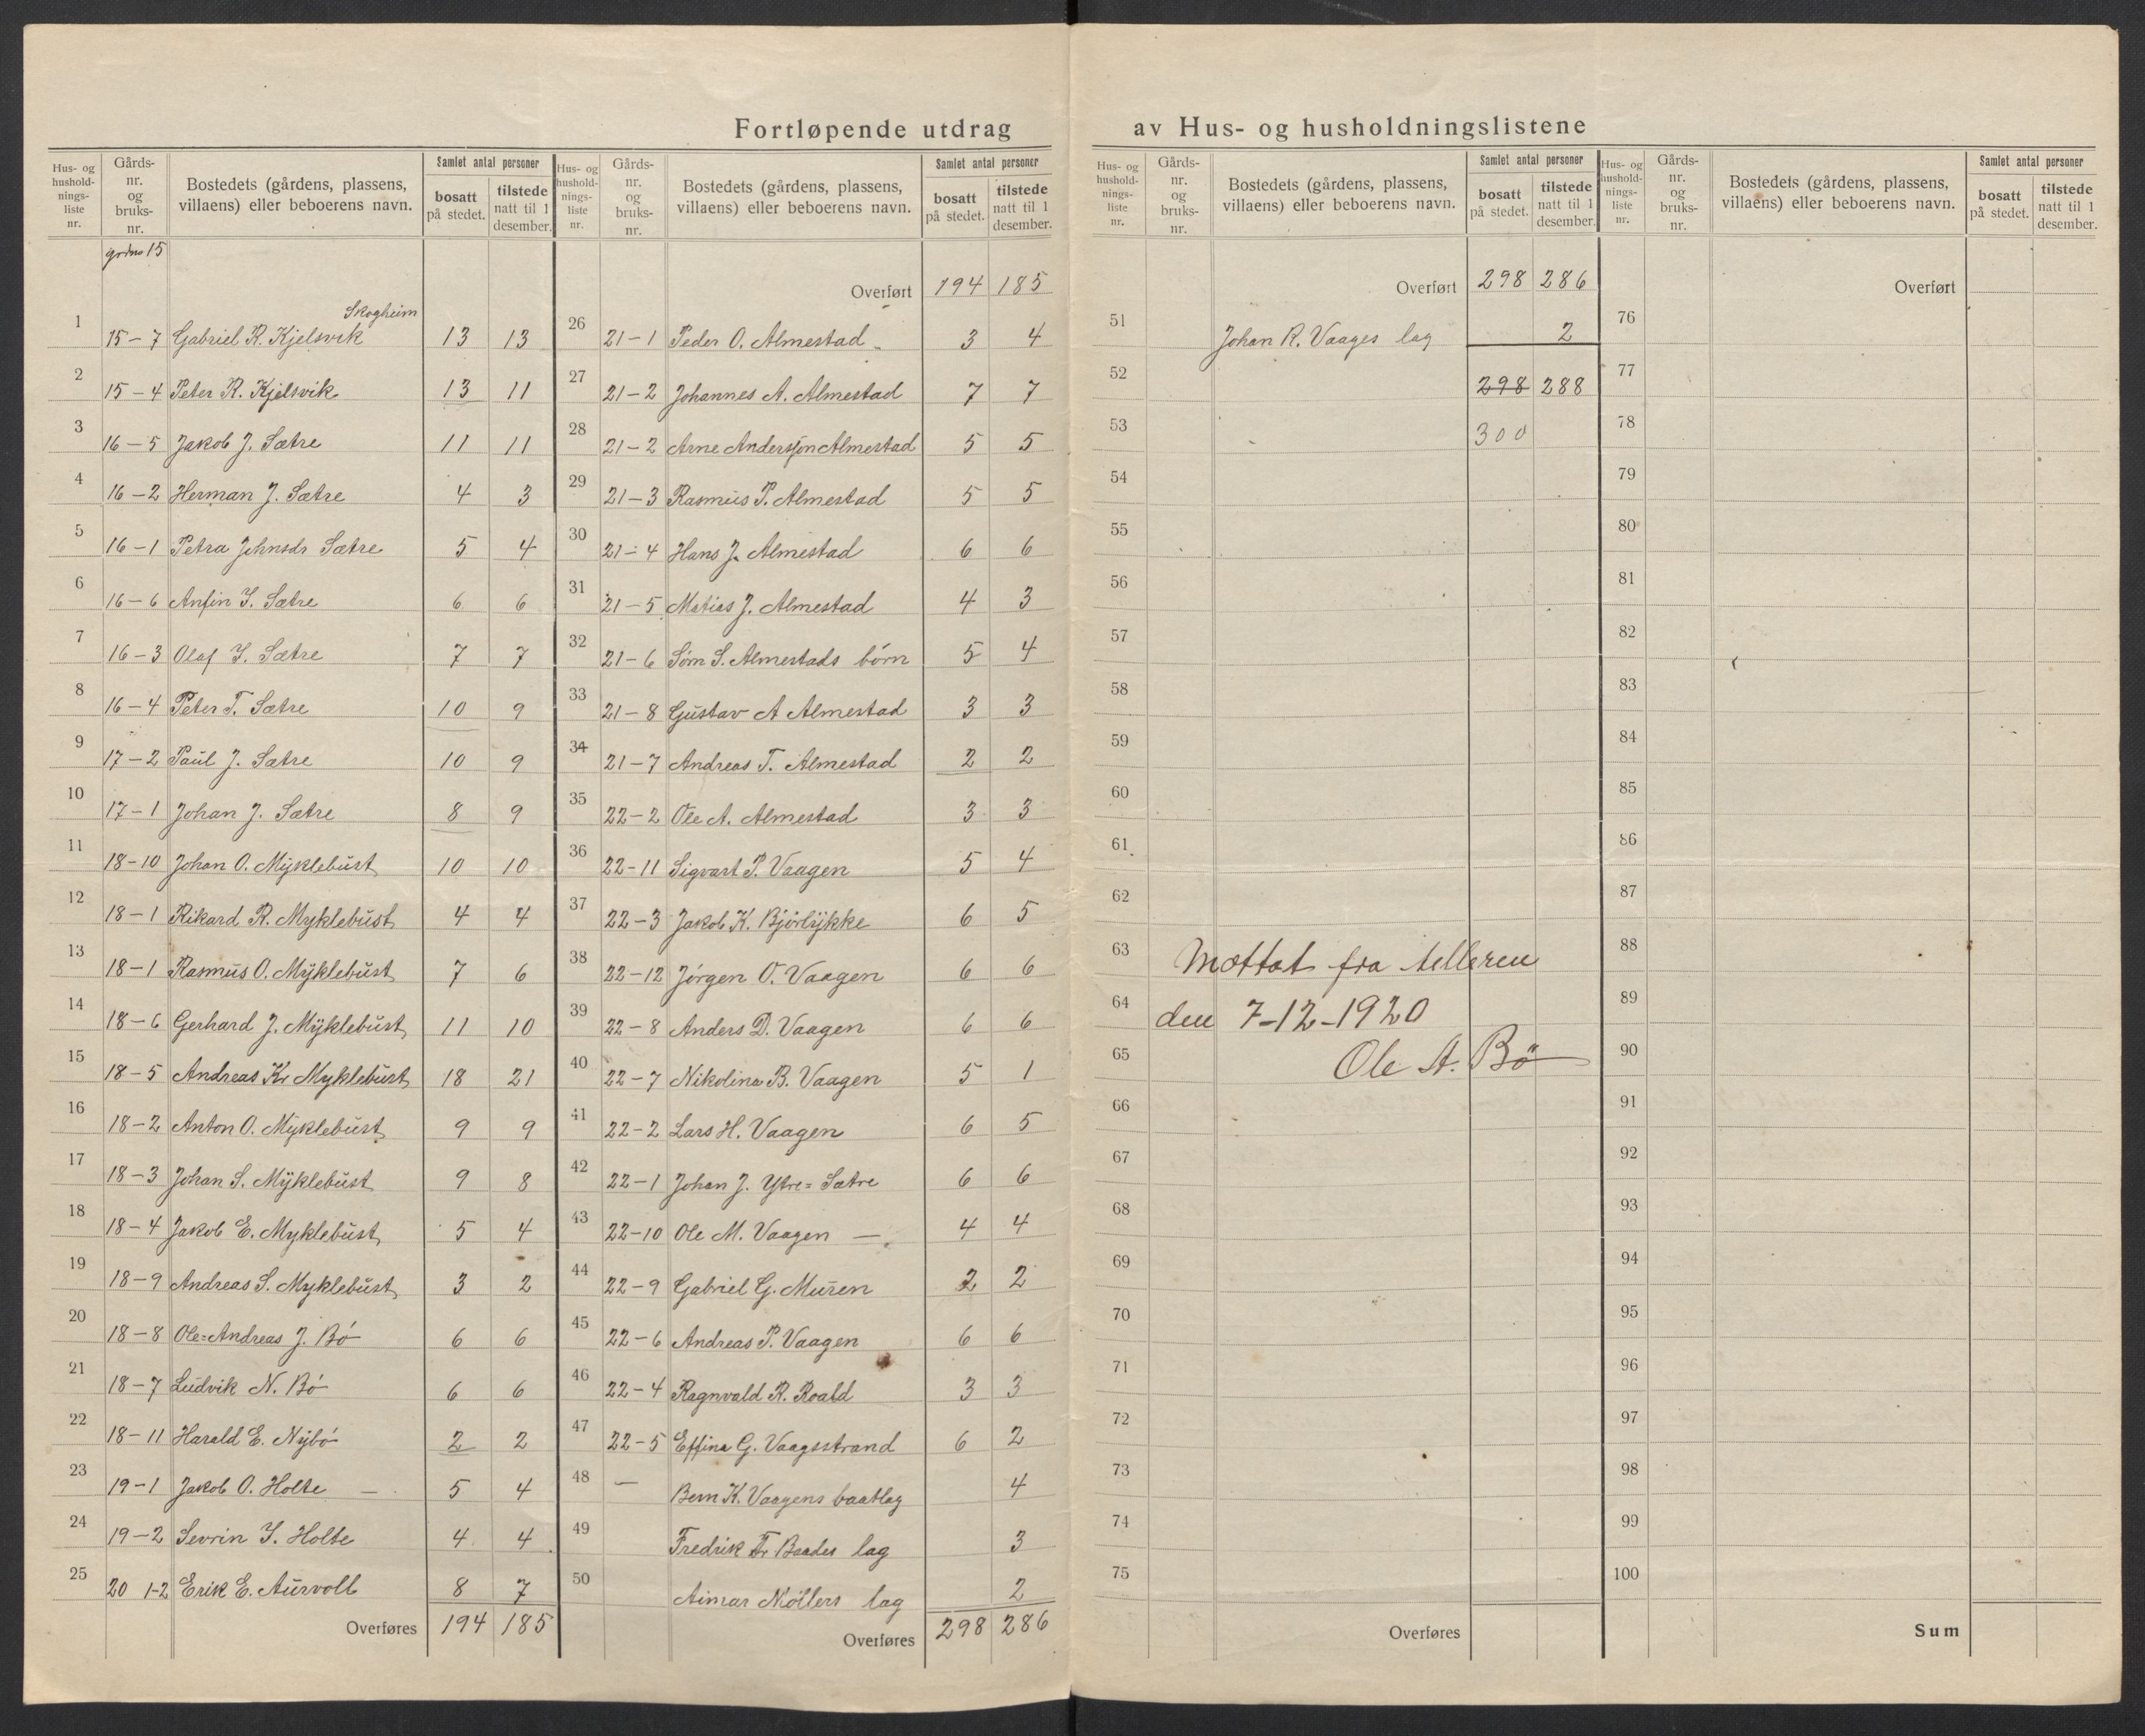 Fortløpende utdrag av Hus- og husholdningslistene
Hus- og hushold-nings-liste nr. Gårds-nr. og bruks-nr. Bostedets (gårdens, plassens, villaens) eller beboerens navn. Samlet antal personer bosatt på stedet. tilstede natt til 1 desember.
15
Skogheim
1 15-7 Gabriel R. Kjelsvik 13 13
2 15-4 Peter R. Kjelsvik 13 11
3 16-5 Jakob J. Sætre 11 11
4 16-2 Herman J. Sætre 4 3
5 16-1 Petra Johnsdr Sætre 5 4
6 16-6 Anfin I. Sætre 6 6
7 16-3 Olaf I. Sætre 7 7
8 16-4 Peter T. Sætre 10 9
9 17-2 Paul J. Sætre 10 9
10 17-1 Johan J. Sætre 8 9
11 18-10 Johan O. Myklebust 10 10
12 18-1 Rikard R. Myklebust 4 4
13 18-1 Rasmus O. Myklebust 7 6
14 18-6 Gerhard J. Myklebust 11 10
15 18-5 Andreas Kr Myklebust 18 21
16 18-2 Anton O. Myklebust 9 9
17 18-3 Johan S. Myklebust 9 8
18 18-4 Jakob E. Myklebust 5 4
19 18-9 Andreas S. Myklebust 3 2
20 18-8 Ole=Andreas J. Bó 6 6
21 18-7 Ludvik N. Bó 6 6
22 18-11 Harald E. Nybó 2 2
23 19-1 Jakob O. Holte — 5 4
24 19-2 Sevrin I. Holte 4 4
25 20 1-2 Erik E. Aurvoll 8 7
Overføres 194 185
Hus- og hushold-nings-liste nr. Gårds-nr. og bruks-nr. Bostedets (gårdens, plassens, villaens) eller beboerens navn. Samlet antal personer bosatt på stedet. tilstede natt til 1 desember.
Overført 194 185
26 21-1 Peder O. Almestad 3 4
27 21-2 Johannes A. Almestad 7 7
28 21-2 Arne Andersson Almestad 5 5
29 21-3 Rasmus P. Almestad 5 5
30 21-4 Hans J. Almestad 6 6
31 21-5 Matias J. Almestad 4 3
32 21-6 S. Almestads børn 5 4
33 21-8 Gustav A Almestad 3 3
34 21-7 Andreas T. Almestad 2 2
35 22-2 Ole A. Almestad 3 3
36 22-11 Sigvart P. Vaagen 5 4
37 22-3 Jakob K. Bjórlykke 6 5
38 22-12 Jórgen O. Vaagen 6 6
39 22-8 Anders D. Vaagen 6 6
40 22-7 Nikolina B. Vaagen 5 1
41 22-2 Lars H. Vaagen 6 5
42 22-1 Johan J. Ytre=Sætre 6 6
43 22-10 Ole M. Vaagen — 4 4
44 22-9 Gabriel G. Muren 2 2
45 22-6 Andreas P. Vaagen 6 6
46 22-4 Ragnvald R. Roald 3 3
47 22-5 Effina G. Vaagsstrand 6 2
48 — Bern K. Vaagens baatlag 4
49 Fredrik Fr Baades lag 3
50 Aimar Nóllers lag 2
Overføres 298 286
Hus- og hushold-nings-liste nr. Gårds-nr. og bruks-nr. Bostedets (gårdens, plassens, villaens) eller beboerens navn. Samlet antal personer bosatt på stedet. tilstede natt til 1 desember.
Overført 298 286
51 Johan R. Vaages lag 2
52 298 288
53 300
54
55
56
57
58
59
60
61
62
63 Mottat fra telleren
64 den 7-12-1920
65 Ole A. Bö
66
67
68
69
70
71
72
73
74
75
Overføres
Hus- og hushold-nings-liste nr. Gårds-nr. og bruks-nr. Bostedets (gårdens, plassens, villaens) eller beboerens navn. Samlet antal personer bosatt på stedet. tilstede natt til 1 desember.
Overført
76
77
78
79
80
81
82
83
84
85
86
87
88
89
90
91
92
93
94
95
96
97
98
99
100
Sum